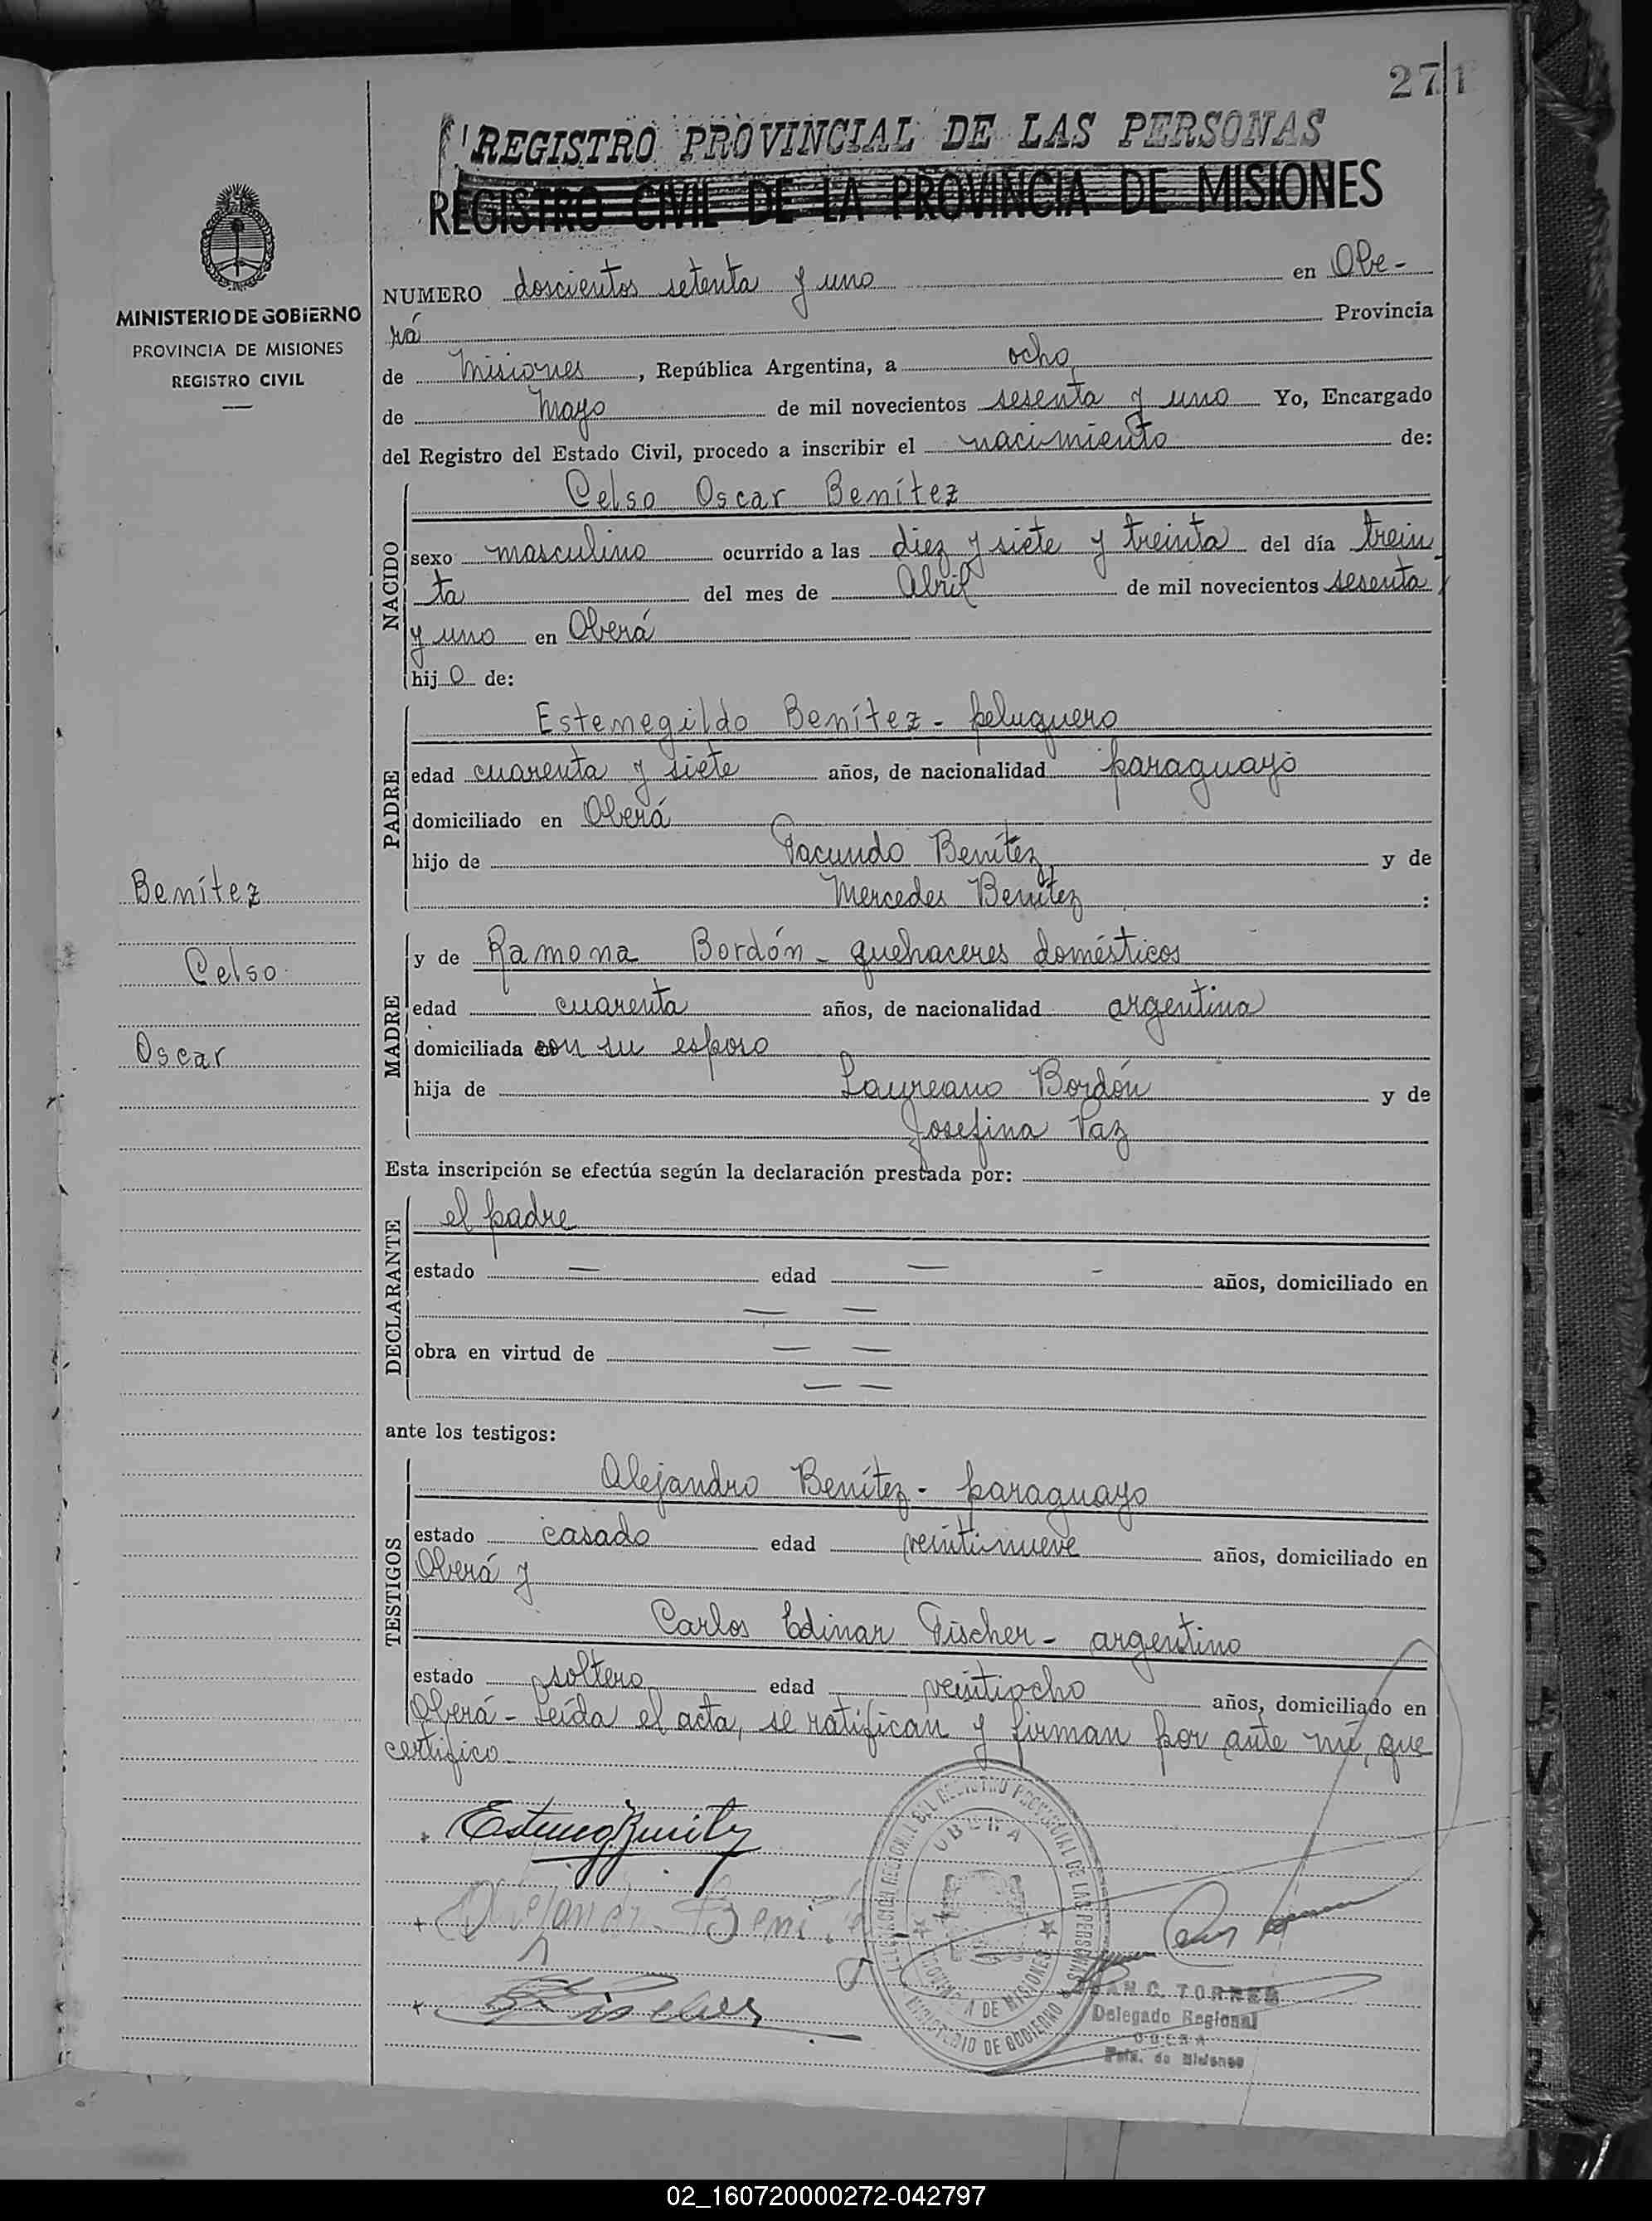 271
REGISTRO PROVINCIAL DE LAS PERSONAS
REGISTRO CIVIL DE LA PROVINCIA DE MISIONES
MINISTERIO DE GOBIERNO
PROVINCIA DE MISIONES
REGISTRO CIVIL
Benítez
Celso
Oscar
NUMERO doscientos setenta y uno en Obe-
rá Provincia
de Misiones, República Argentina, a ocho
de Mayo de mil novecientos sesenta y uno Yo, Encargado
del Registro del Estado Civil, procedo a inscribir el nacimiento de:
NACIDO
Celso Oscar Benítez
sexo masculino ocurrido a las diez y siete y treinta del día trein
ta del mes de Abril de mil novecientos sesenta
y uno en Oberá
hijo de:
PADRE
Estemegildo Benítez - peluquero
edad cuarenta y siete años, de nacionalidad paraguayo
domiciliado en Oberá
hijo de Facundo Benítez y de
Mercedes Benítez :
MADRE
y de Ramona Bordón - quehaceres domésticos
edad cuarenta años, de nacionalidad argentina
domiciliada con su esposo
hija de Laureano Bordón y de
Josefina Paz
Esta inscripción se efectúa según la declaración prestada por:
DECLARANTE
el padre
estado — edad — - años, domiciliado en
— —
obra en virtud de — —
— —
ante los testigos:
TESTIGOS
Alejandro Benítez - paraguayo
estado casado edad veintinueve años, domiciliado en
Oberá y
Carlos Edinar Fischer - argentino
estado soltero edad veintiocho años, domiciliado en
Oberá - Leída el acta, se ratifican y firman por ante mí, que
certifico
DELEGACION REGIONAL DEL REGISTRO PROVINCIAL DE LAS PERSONAS
OBERA
PROVINCIA DE MISIONES
MINISTERIO DE GOBIERNO
JUAN C. TORRES
Delegado Regional
OBERA
Pcia. de Misiones
02_160720000272-042797